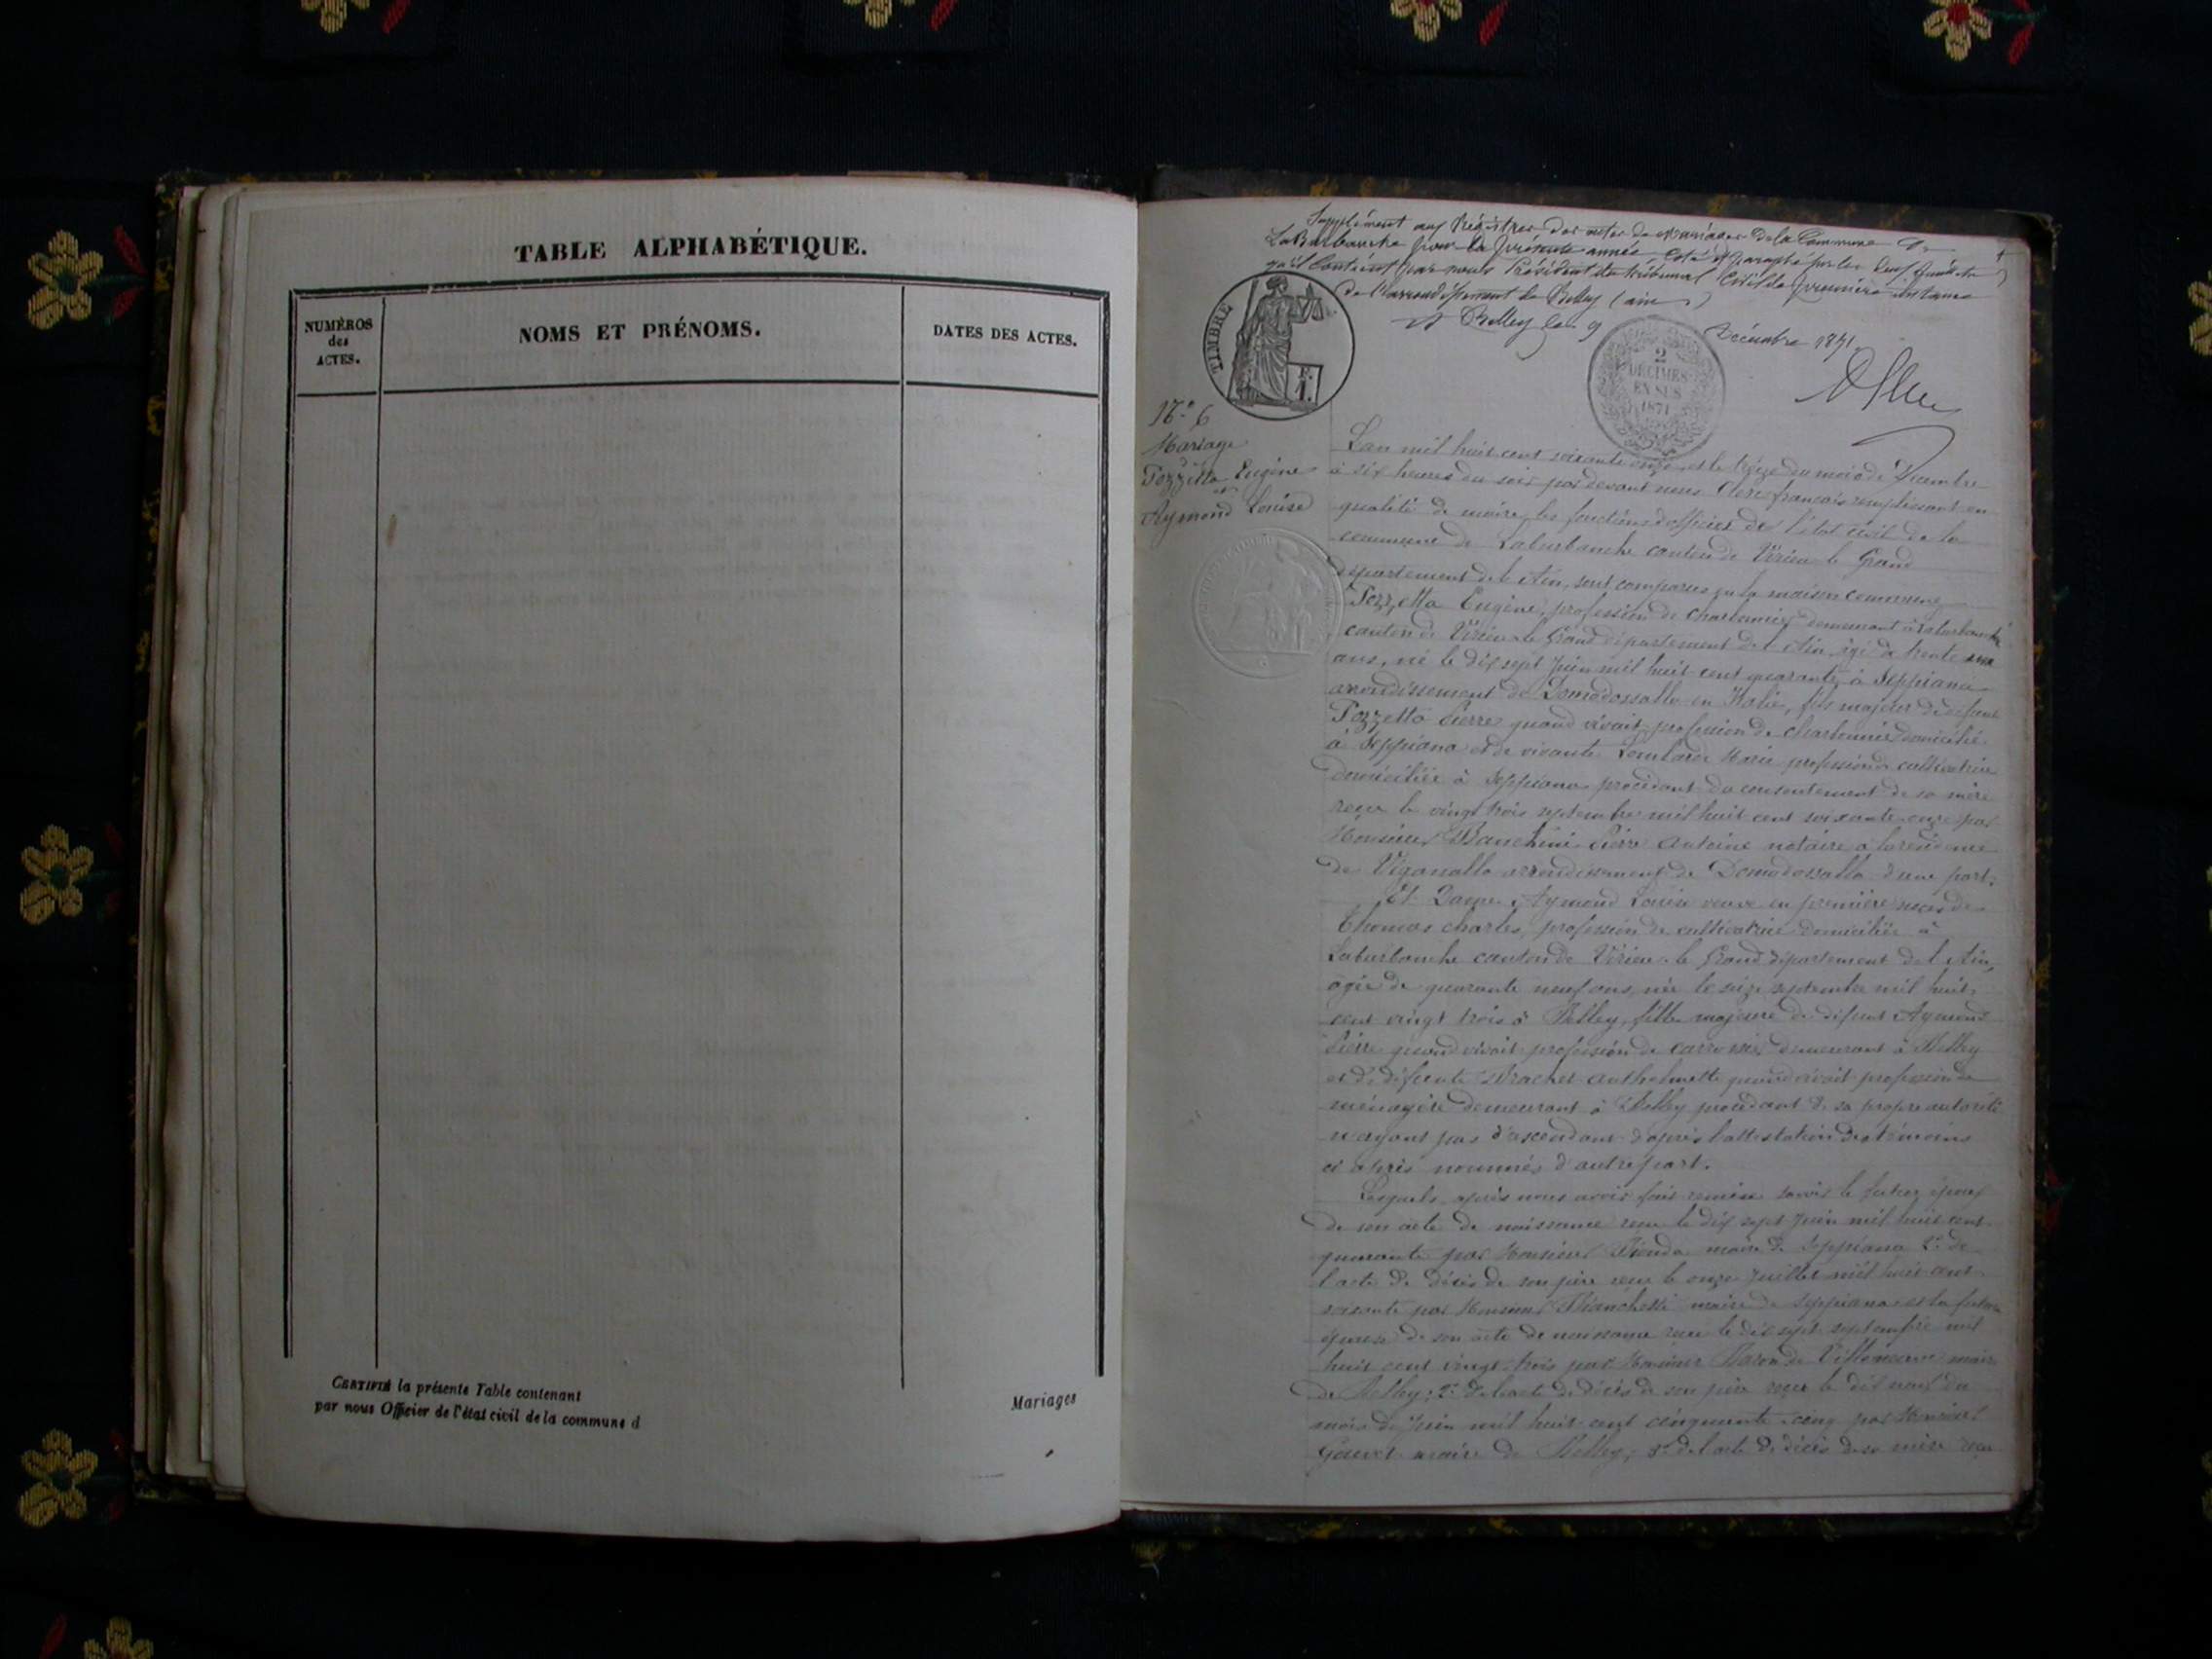 TABLE ALPHABÉTIQUE.
NUMÉROS
des
ACTES.
NOMS ET PRÉNOMS.
DATES DES ACTES.
CERTIFIÉ la présente Table contenant
par nous Officier de l'état civil de la commune d
Mariages
Supplément aux Régistres des actes de Mariages de la Commune de
LaBurbanche pour la présente année Coté et paraphé par les deux feuillets
qu'il Contient par nous Président du tribunal Civil de première instance
de l'arrondissement de Belley (ain)
à Belley le 9 Décembre 1871
TIMBRE
2
DÉCIMES
EN SUS
1871
N° 6
Mariage
Pozzetta Eugène
et
Aymond Louise
L'an mil huit cent soixante onze et le treize du mois de Décembre
à six heures du soir par devant nous Clerc françois remplissant en
qualité de maire les fonctions d'officier de l'état civil de la
commune de Laburbanche canton de Virieu le Grand
département de l'Ain, sont comparus en la maison commune
Pozzetta Eugène, profession de charbonnier demeurant à Laburbanche
canton de Virieu le Grand département de l'Ain âgé de trente un
ans, né le dix sept Juin mil huit cent quarante à Seppiana
arrondissement de Domodossolla en Italie, fils majeur de défunt
Pozzetta Pierre quand vivait profession de charbonnier domicilié
à Seppiana et de vivante Lombardi Marie profession de cultivatrice
domiciliée à Seppiana procédant du consentement de sa mère
reçu le vingt trois septembre mil huit cent soixante onze par
Monsieur Bianchini Pierre Antoine notaire à la résidence
de Viganella arrondissement de Domodossolla d'une part.
Et Dame Aymond Louise veuve en première noces de
Thomas Charles, profession de cultivatrice domiciliée à
Laburbanche canton de Virieu le Grand département de l'Ain,
âgée de quarante neuf ans, née le seize septembre mil huit
cent vingt trois à Belley, fille majeure de défunt Aymond
Pierre quand vivait profession de carrossier demeurant à Belley
et de défunte Brachet Anthelmette quand vivait profession de
ménagère demeurant à Belley procédant de sa propre autorité
n'ayant pas d'ascendant d'après l'attestation des témoins
ci après nommés d'autre part.
Lesquels après nous avoir fait remise savoir le futur époux
de son acte de naissance reçu le dix sept Juin mil huit cent
quarante par Monsieur maire de Seppiana 2° de
l'acte de décès de son père reçu le onze Juillet mil huit cent
soixante par Monsieur maire de Seppiana et la future
épouse de son acte de naissance reçu le dix sept septembre mil
huit cent vingt trois par Monsieur Baron de Villeneuve maire
de Belley; 2° de l'acte de décès de son père reçu le dix neuf du
mois de Juin mil huit cent cinquante cinq par Monsieur
maire de Belley; 3° de l'acte de décès de sa mère reçu